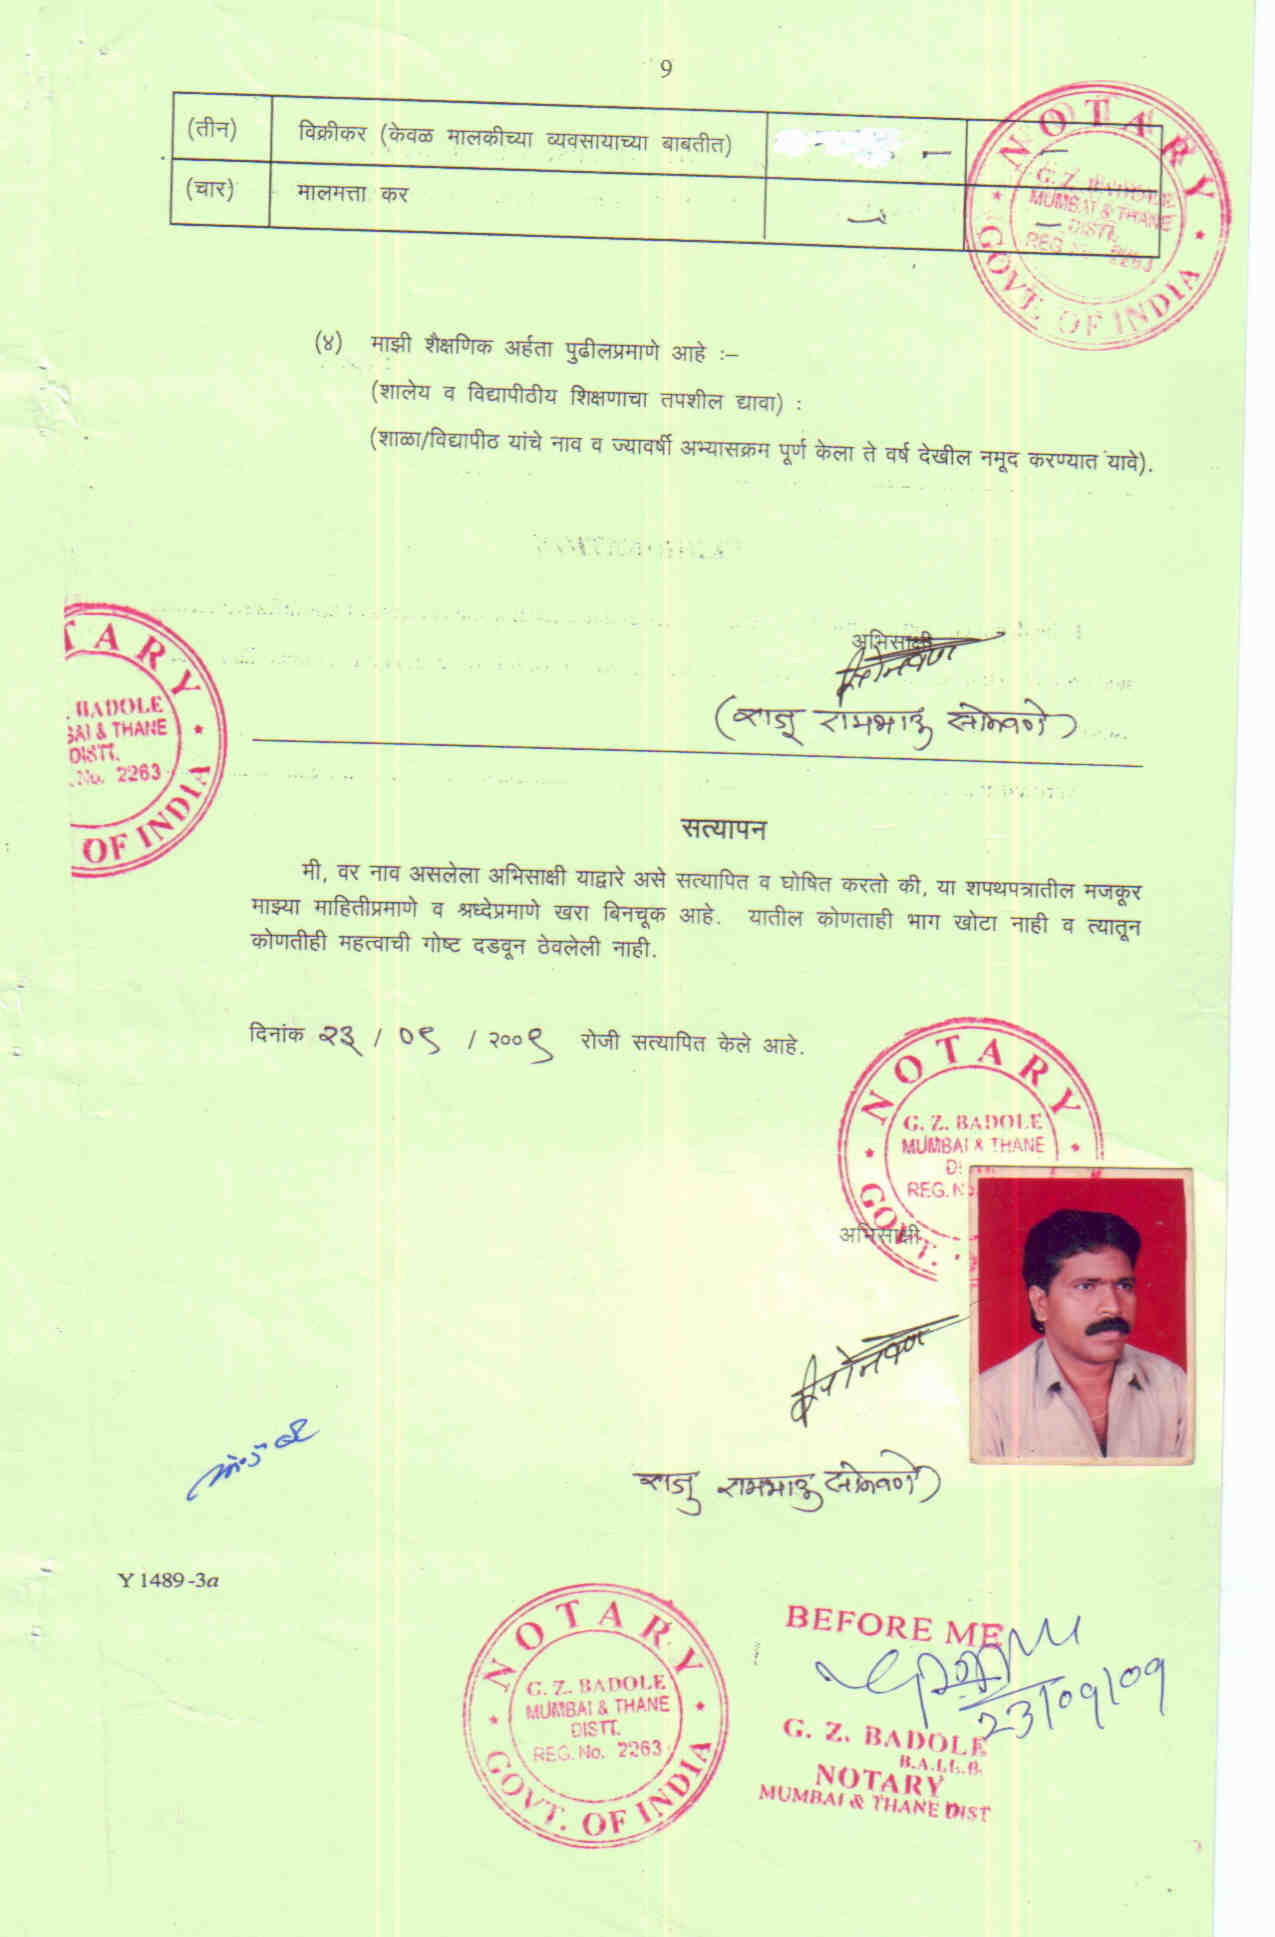 9
(तीन) विक्रीकर (केवळ मालकीच्या व्यवसायाच्या बाबतीत) — —
(चार) मालमत्ता कर — —
NOTARY
G. Z. BADOLE
MUMBAI & THANE
DISTT.
REG. No. 2263
GOVT. OF INDIA
(४) माझी शैक्षणिक अर्हता पुढीलप्रमाणे आहे :—
(शालेय व विद्यापीठीय शिक्षणाचा तपशील द्यावा) :
(शाळा/विद्यापीठ यांचे नाव व ज्यावर्षी अभ्यासक्रम पूर्ण केला ते वर्ष देखील नमूद करण्यात यावे).
TARY
. BADOLE
BAI & THANE
DISTT.
. No. 2263
OF INDIA
अभिसाक्षी
(राजू रामभाऊ सोनवणे)
सत्यापन
मी, वर नाव असलेला अभिसाक्षी याद्वारे असे सत्यापित व घोषित करतो की, या शपथपत्रातील मजकूर
माझ्या माहितीप्रमाणे व श्रध्देप्रमाणे खरा बिनचूक आहे. यातील कोणताही भाग खोटा नाही व त्यातून
कोणतीही महत्वाची गोष्ट दडवून ठेवलेली नाही.
दिनांक २३ / ०९ / २००९ रोजी सत्यापित केले आहे.
NOTARY
G. Z. BADOLE
MUMBAI & THANE
REG. No.
GOVT.
अभिसाक्षी
राजु रामभाऊ सोनवणे
Y 1489-3a
NOTARY
G. Z. BADOLE
MUMBAI & THANE
DISTT.
REG. No. 2263
GOVT. OF INDIA
BEFORE ME
23/09/09
G. Z. BADOLE
B.A.LL.B.
NOTARY
MUMBAI & THANE DIST